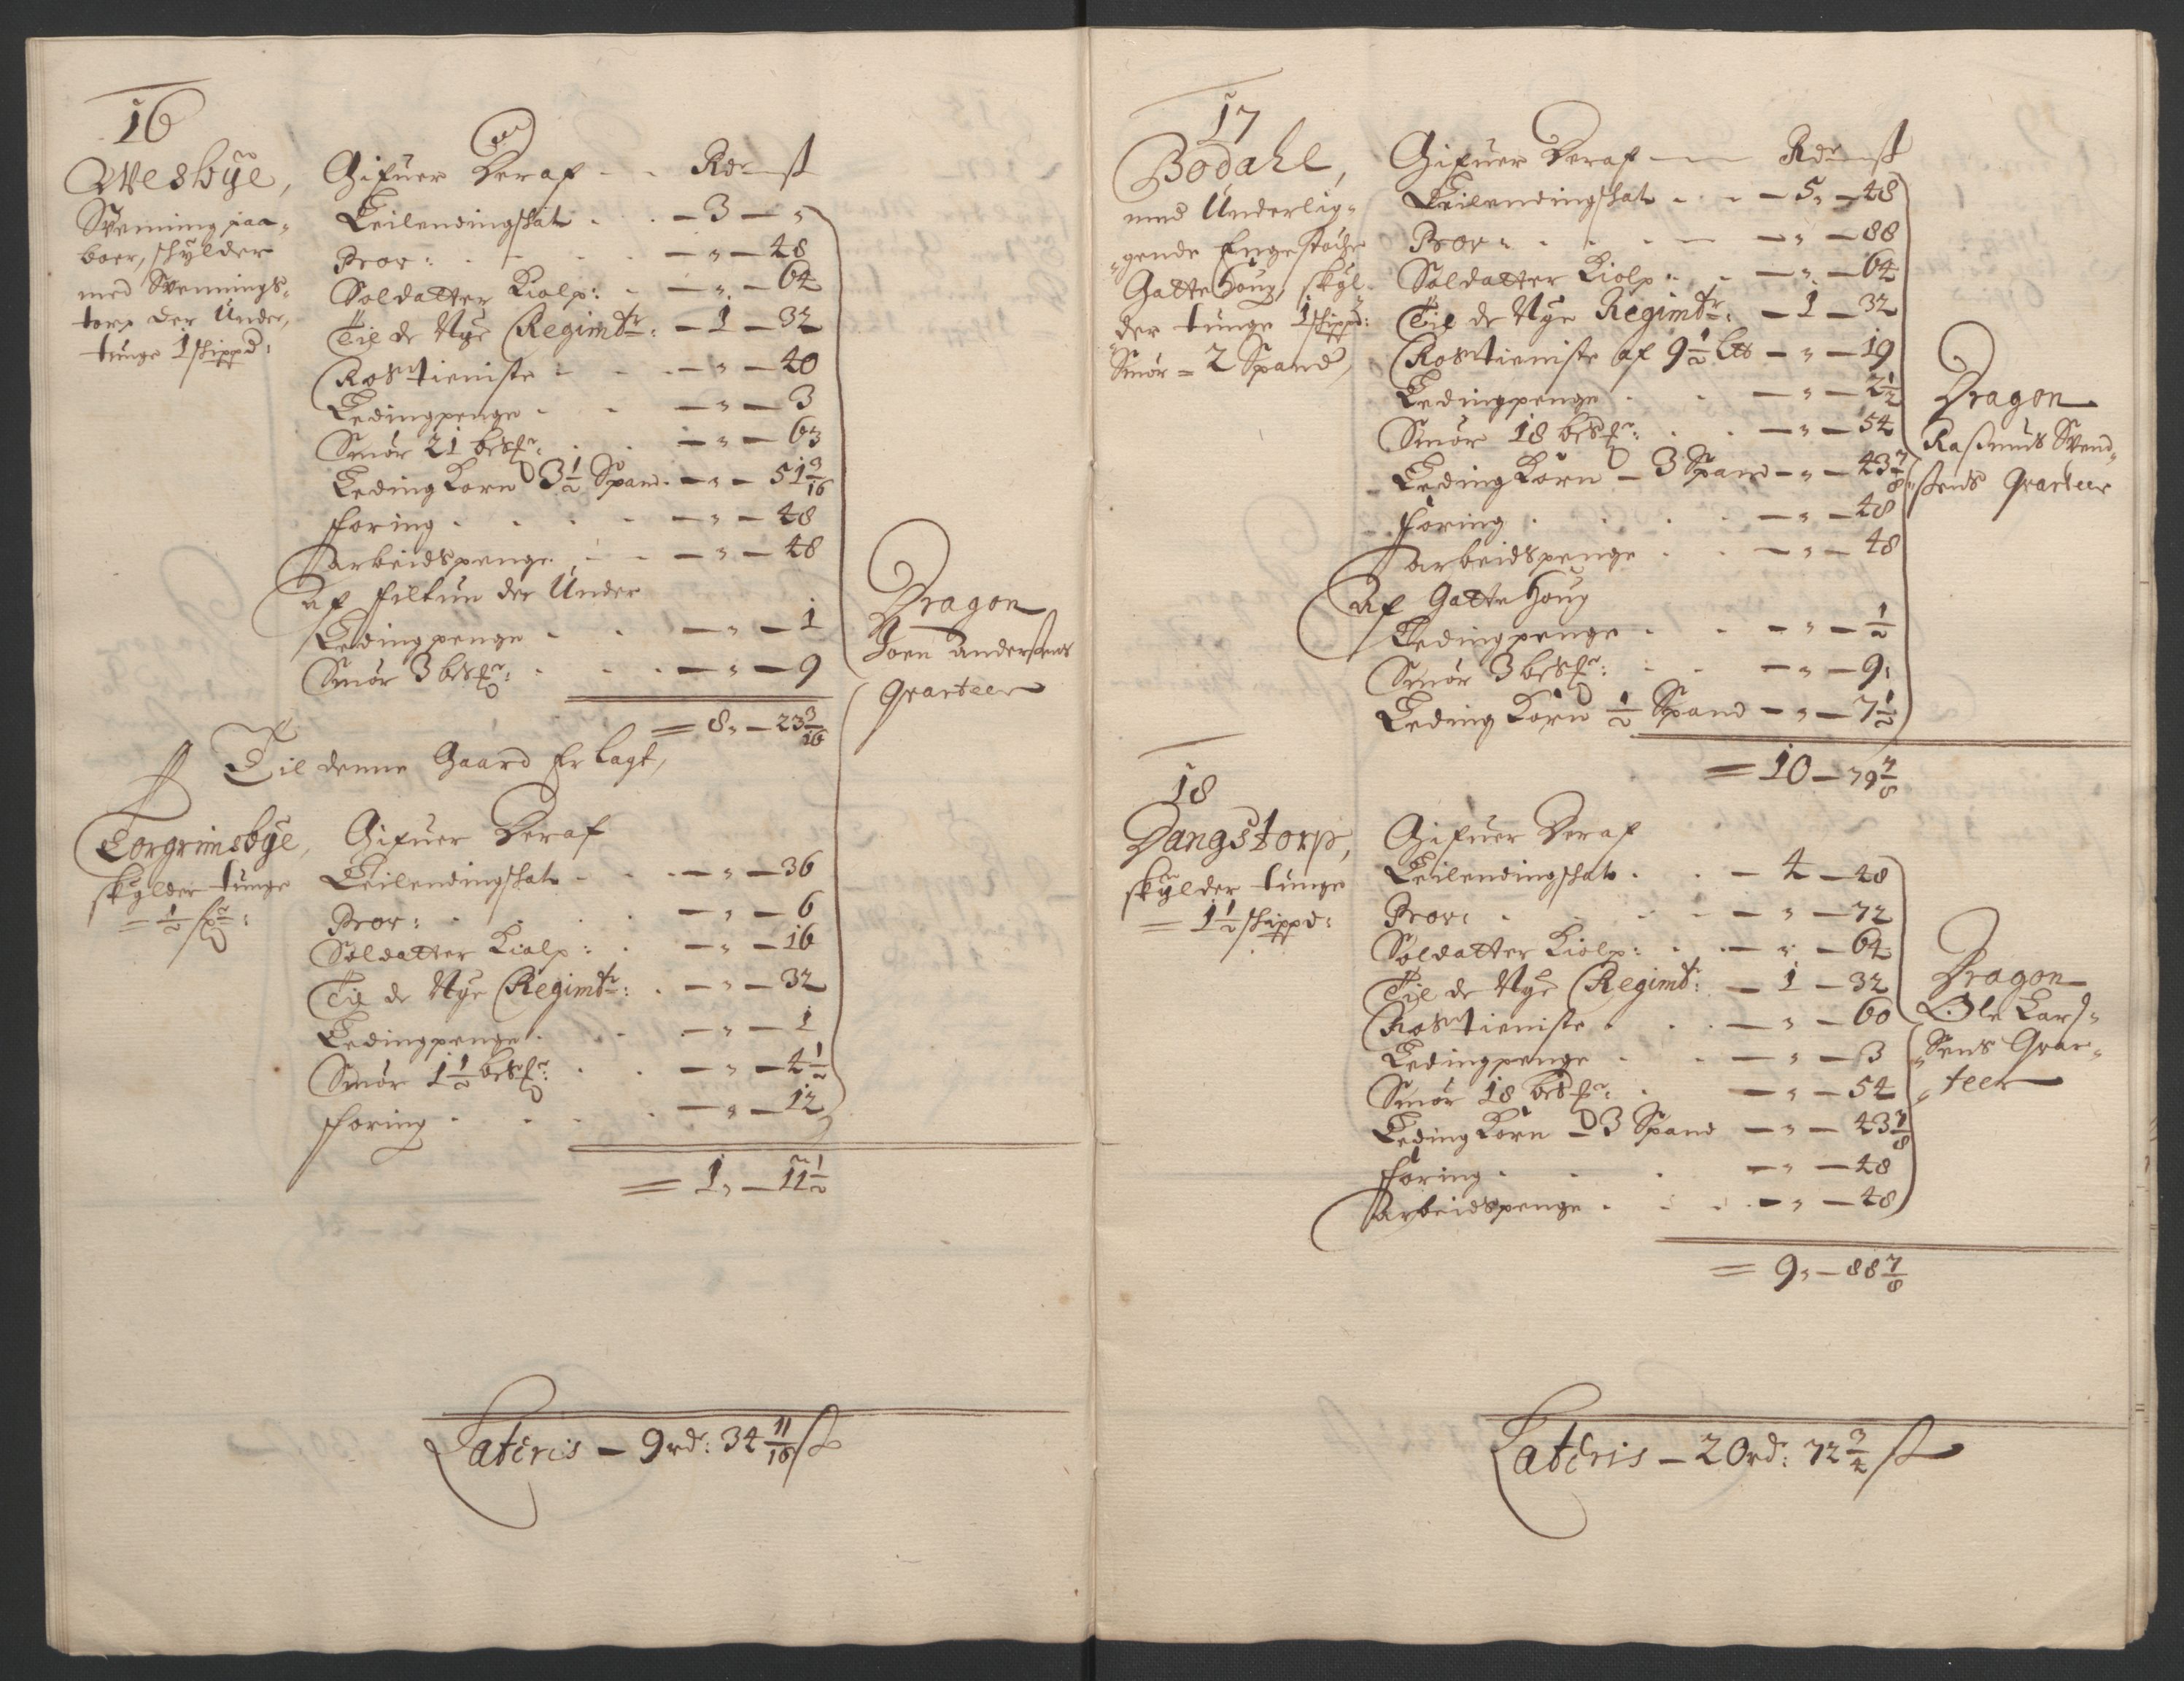 16
Wesbÿe,
Svenning paa-
boer, skÿlder
med Svennings-
torp der Under,
tunge 1 skippd:
Gifuer Deraf - - Rdr ß
Leilendingskat . . - 3 - "
Prov: . . . - " - 48
Soldatter Kiolp: . - " - 64
Til de Nÿe Regimtr: - 1 - 32
Rostieniste . . - " - 40
Ledingpenge . . - " - 3
Smör 21 besmr: . . - " - 63
Leding Korn 3½ Spand - " - 51 3/16
Foring . . . . - " - 48
Arbeidspenge . . - " - 48
Af Filtun der Under
Ledingpenge . . - " - 1
Smör 3 besmr: . . - " - 9
= 8 " - 23 3/16
Dragon
Joen Anderssens
Qvarteer
Til denne Gaard Er lagt,
Torgrimsbÿe,
skÿlder tunge
= ½ skpd:
Gifuer Deraf
Leilendingskat . . - " - 36
Prov: . . . - " - 6
Soldatter Kiolp: . - " - 16
Til de Nÿe Regimtr: . - " - 32
Ledingpenge . . - " - 1
Smör 1½ besmr: . . - " - 4½
Foring . . . . - " - 12
= 1 " - 11½
Lateris - 9 rdr: 34 11/16 ß
17
Bödahl,
med Underlig-
gende Engestöche
Gatte Houg, skÿl-
der tunge 1 skippd:
Smör = 2 Spand,
Gifuer Deraf - Rdr ß
Leilendingskat . . - 5 " - 48
Prov: . . . - " - 88
Soldatter Kiolp: . - " - 64
Til de Nÿe Regimtr: - 1 - 32
Rostieniste af 9½ L℔ - " - 19
Ledingpenge . . - " - 2½
Smör 18 besmr: . . - " - 54
Leding Korn - 3 Spand - " - 43 7/8
Foring . . . . - " - 48
Arbeidspenge . . - " - 48
Af Gatte Houg
Ledingpenge . . - " - ½
Smör 3 besmr: . . - " - 9:
Leding Korn ½ Spand - " - 7½
= 10 - 79 7/8
Dragon
Rasmus Svend-
sens Qvarteer
18
Dangstorp,
skÿlder tunge
= 1½ skippd:
Gifuer Deraf
Leilendingskat . . - 4 - 48
Prov: . . . - " - 72
Soldatter Kiolp: . . - " - 64
Til de Nÿe Regimt: - 1 - 32
Rostieniste . . - " - 60
Ledingpenge . . - " - 3
Smör 18 besmr: . - " - 54
Leding Korn - 3 Spand - " - 43 7/8
Foring . . . - " - 48
Arbeidspenge . . . - " - 48
= 9 " - 88 7/8
Dragon
Ole Lars-
Sens Qvar-
teer
Lateris - 20 rd: 72 3/4 ß